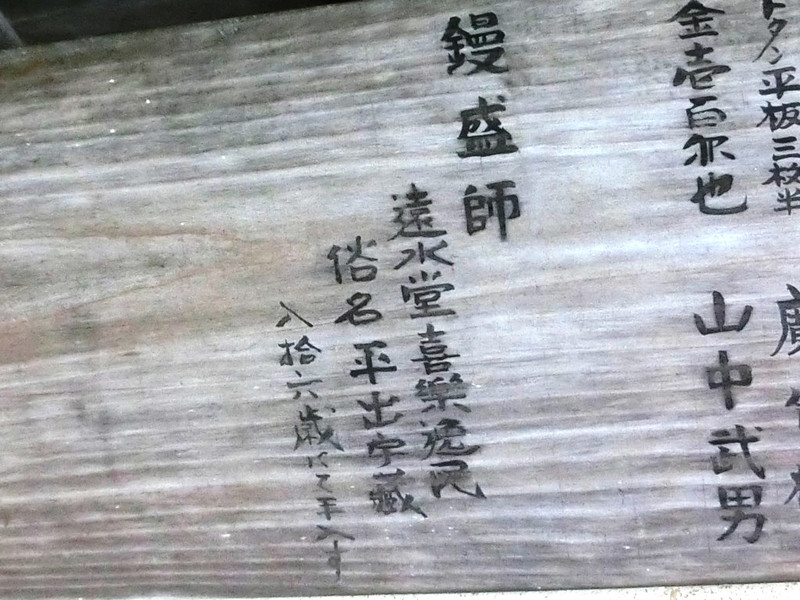 トタン平板三枚半 廣
金壱百尓也 山中武男
鏝盛師
遠水堂喜樂逸民
俗名平出宇藏
八拾六歳にて手入す